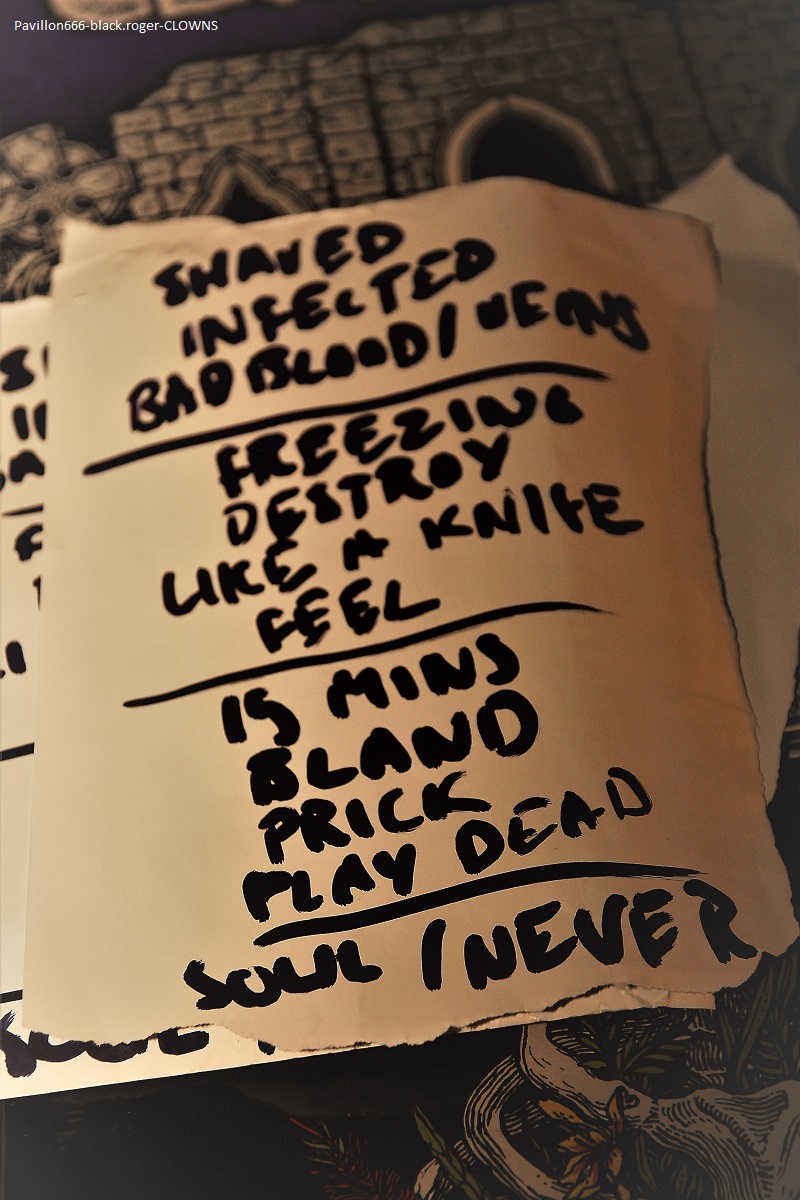 Pavillon666-black.roger-CLOWNS
SHAVED
INFECTED
BAD BLOOD / VEINS
FREEZING
DESTROY
LIKE A KNIFE
FEEL
15 MINS
BLAND
PRICK
PLAY DEAD
SOUL / NEVER